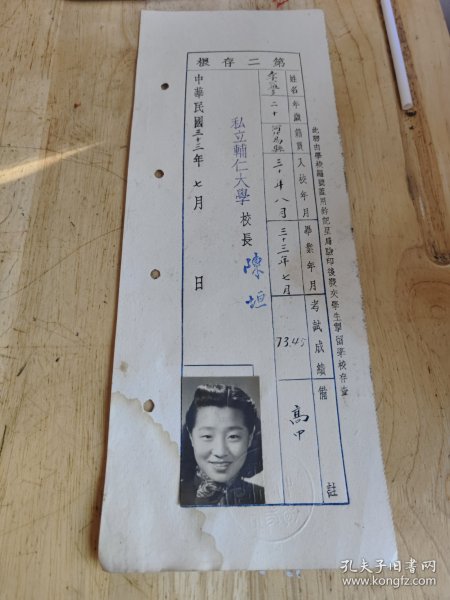 此聯由學校編號蓋用鈐記呈局驗印後發交學生掣留學校存查
第二存根
姓名 年歲 籍貫 入校年月 畢業年月 考試成績 備註
二十 三十年八月 三十三年七月 73.45 高中
私立輔仁大學 校長 陳垣
中華民國三十三年七月 日
孔夫子旧书网
www.kongfz.com